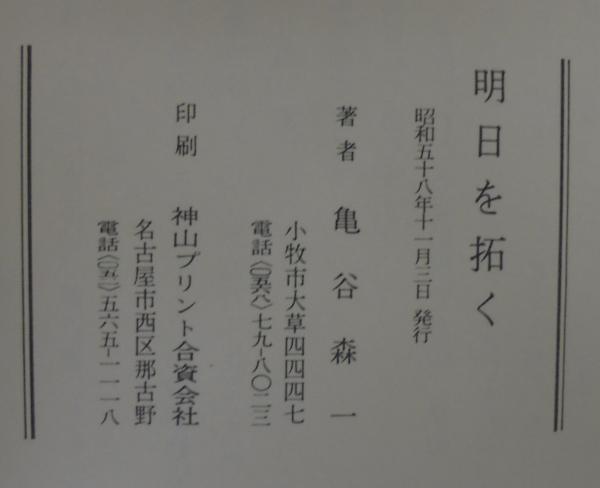 明日を拓く
昭和五十八年十一月三日 発行
著者 亀谷森一
小牧市大草四四四七
電話〈〇五六八〉七九-八〇二三
印刷 神山プリント合資会社
名古屋市西区那古野
電話〈〇五二〉五六五-一一一八